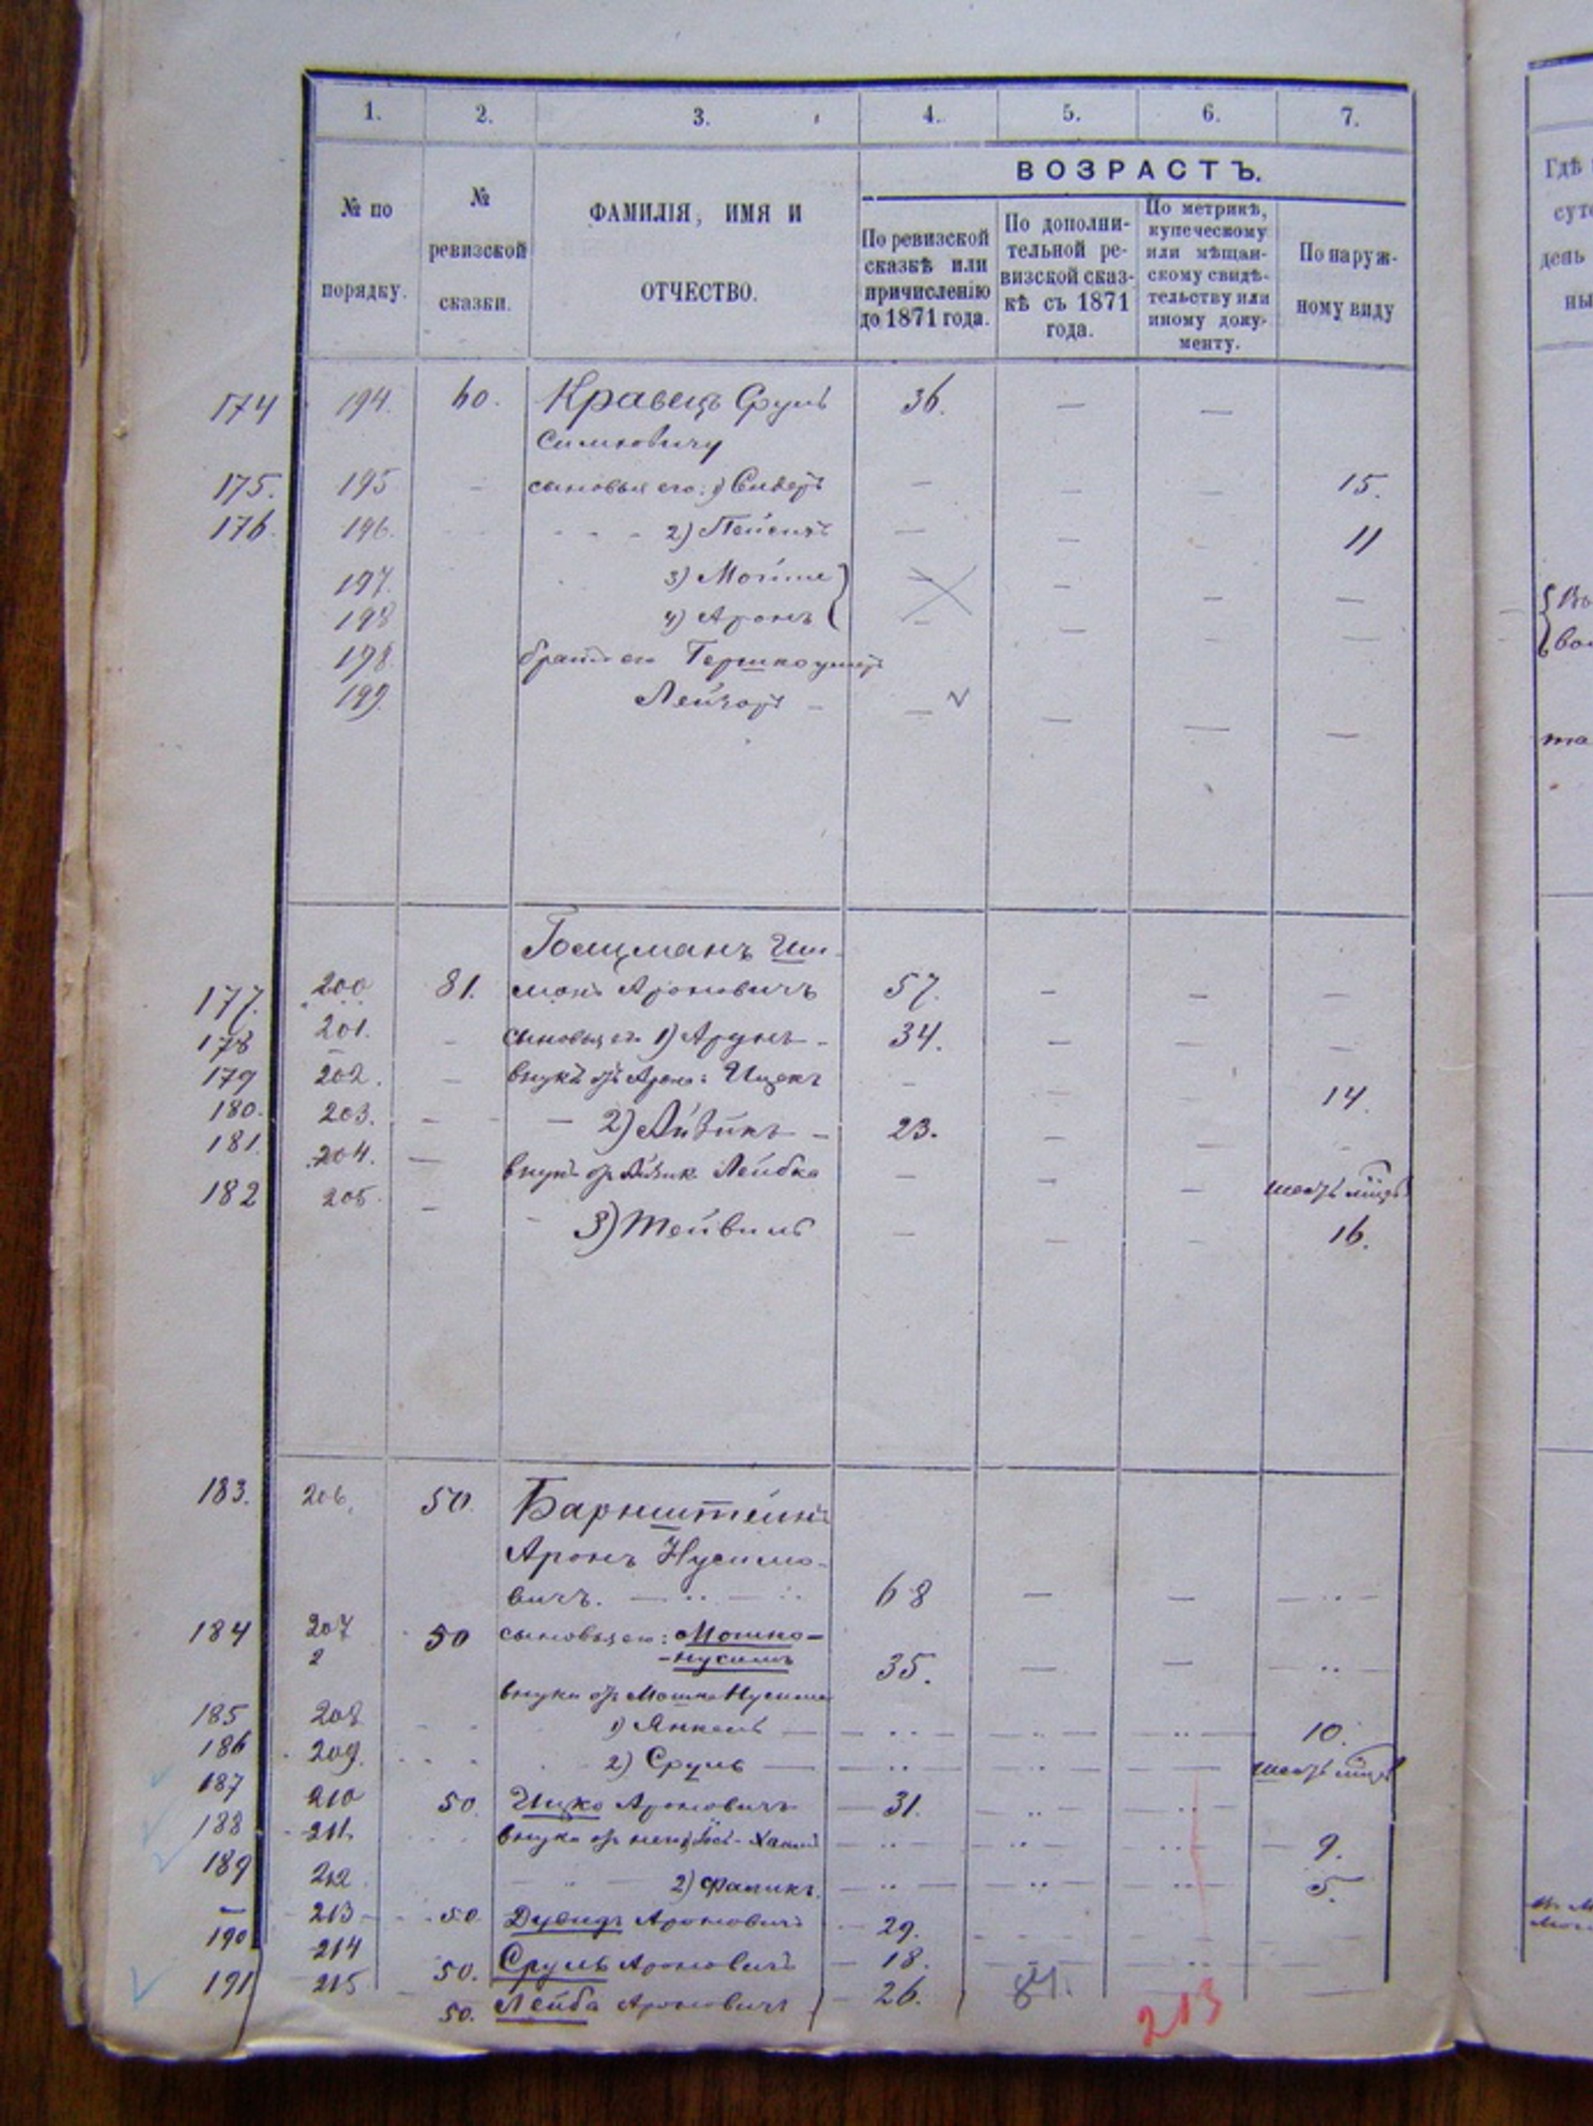 1. 2. 3. 4. 5. 6. 7.
№ по порядку.
№ ревизской сказки.
ФАМИЛІЯ, ИМЯ И ОТЧЕСТВО.
ВОЗРАСТЪ.
По ревизской сказкѣ или причисленію до 1871 года.
По дополнительной ревизской сказкѣ съ 1871 года.
По метрикѣ, купеческому или мѣщанскому свидѣтельству или иному документу.
По наружному виду
Гдѣ
день
174 194. 60. Кравецъ Сруль 36. — —
175. 195 - сыновья его: 1) — — — 15.
176. 196. - - - 2) — — — 11
197. 3) Мошко — — —
198 4) Аронъ — — —
198. братъ его Гершко
199. Лейзоръ — — — —
Гоецманъ Ши-
177. 200 81. монъ Ароновичъ 57. — — —
178 201. — сыновья его 1) Аронъ — 34. — — —
179 202. — внукъ отъ Арона: Ицекъ — — — 14.
180. 203. — — 2) Айзикъ — 23. — — —
181. 204. — внукъ отъ Айзика Лейбка — — — шесть мѣсяц
182 205. — - 3) Тейвиль — — — 16.
183. 206. 50. Барнштейнъ
Аронъ Нусимо-
вичъ. 68 — — —
184 207 50 сыновья его: Мошко-
2 -нусимъ 35. — — —
внуки отъ Мошка Нусима
185 208 1) Янкель — — — — 10.
186 209. 2) Сруль — — — — шесть мѣсяц
187 210 50. Ицко Ароновичъ — 31. — —
188 211. внуки отъ него 9.
189 212 2) Фаликъ. — — — 5.
— 213 - 50. Дувидъ Ароновичъ — 29.
190 214 50. Сруль Ароновичъ — 18.
191 215 50. Лейба Ароновичъ — 26. 84. 213